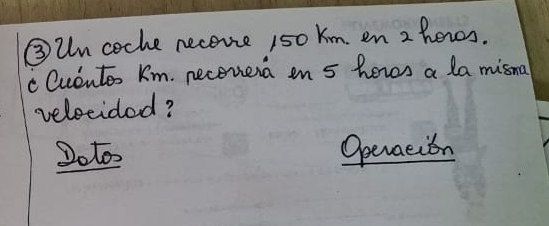 ③ Un coche recorre 150 Km. en 2 horas.
¿Cuántos Km. recorrerá en 5 horas a la misma
velocidad?
Datos Operación